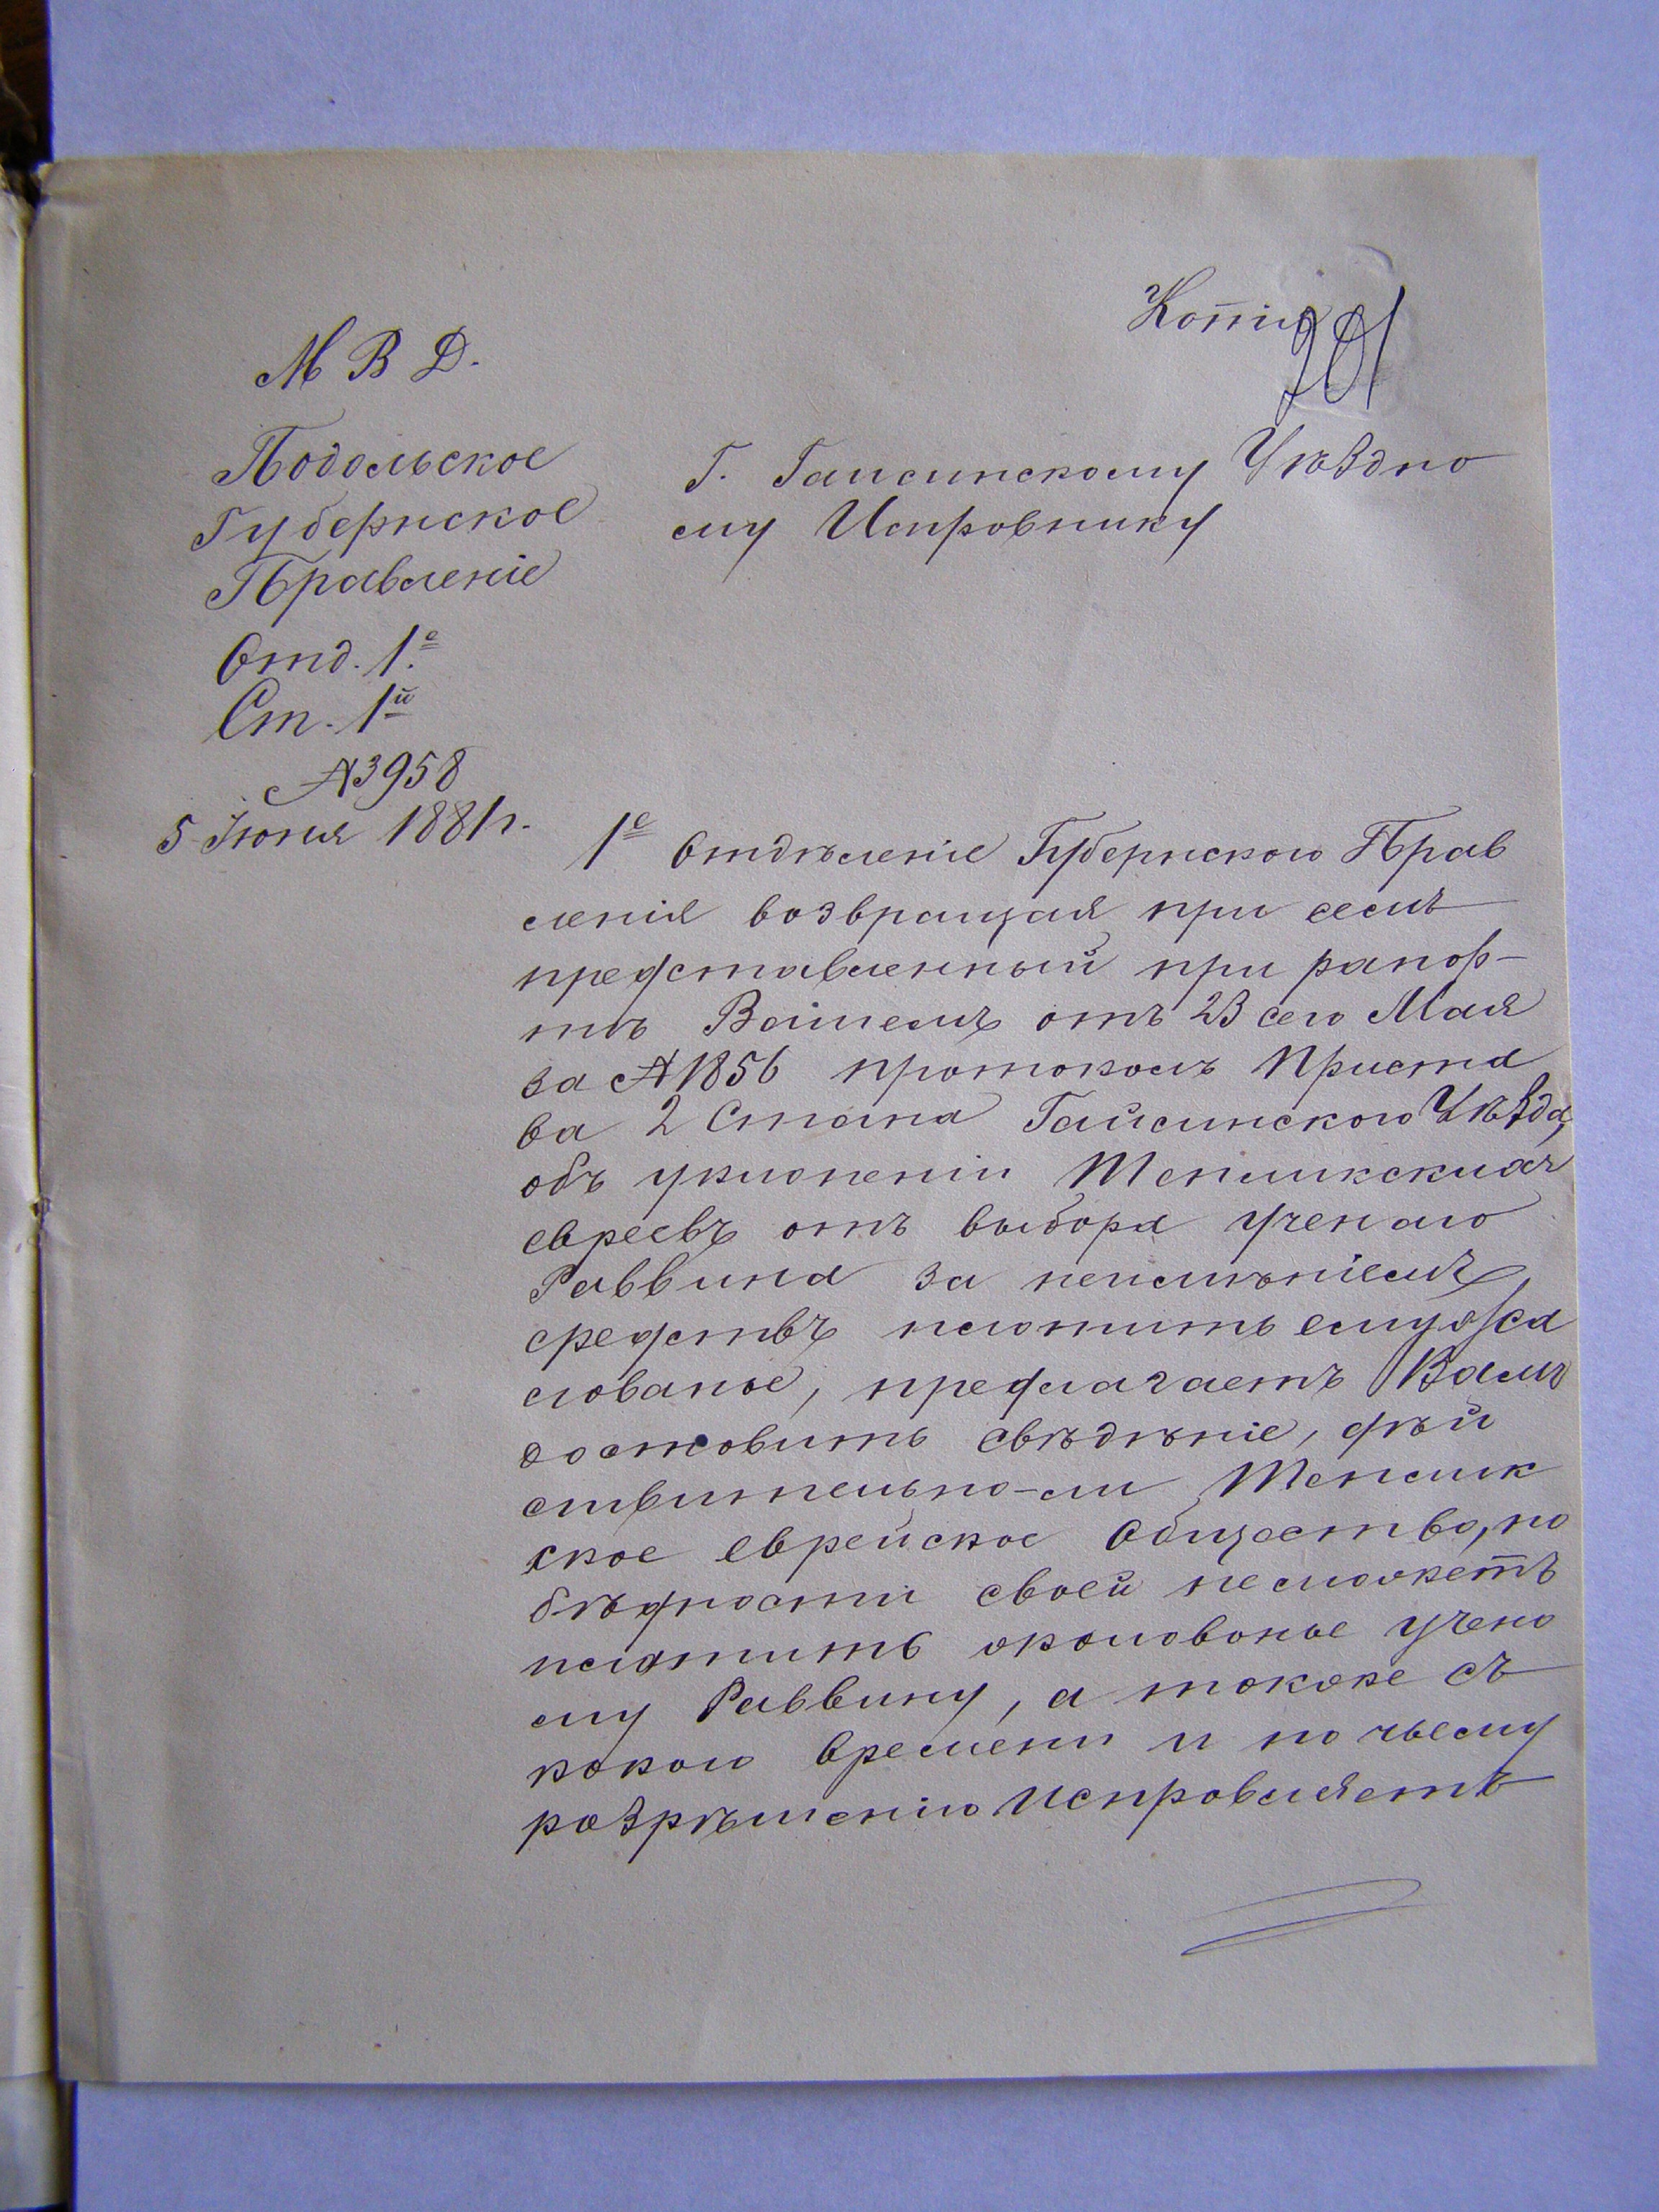 Копія
201
М В Д.
Подольское
Губернское
Правленіе
Отд. 1е
Ст. 1й
№3958
5 Іюня 1881 г.
Г. Гаисинскому Уѣздно
му Исправнику
1е Отдѣленіе Губернскаго Прав
ленія возвращая при семъ
представленный при рапор-
тѣ Вашемъ отъ 23 сего Мая
за №1856 протоколъ Приста
ва 2 Стана Гайсинскаго Уѣзда,
объ уклоненіи Тепликскихъ
евреевъ отъ выбора ученаго
Раввина за неимѣніемъ
средствъ платить ему жа
лованье, предлагаетъ Вамъ
доставить свѣдѣніе, дѣй
ствительно-ли Теплик
ское еврейское Общество, по
бѣдности своей не можетъ
платить жалованье учено
му Раввину, а также съ
какого времени и по чьему
разрѣшенію исправляетъ